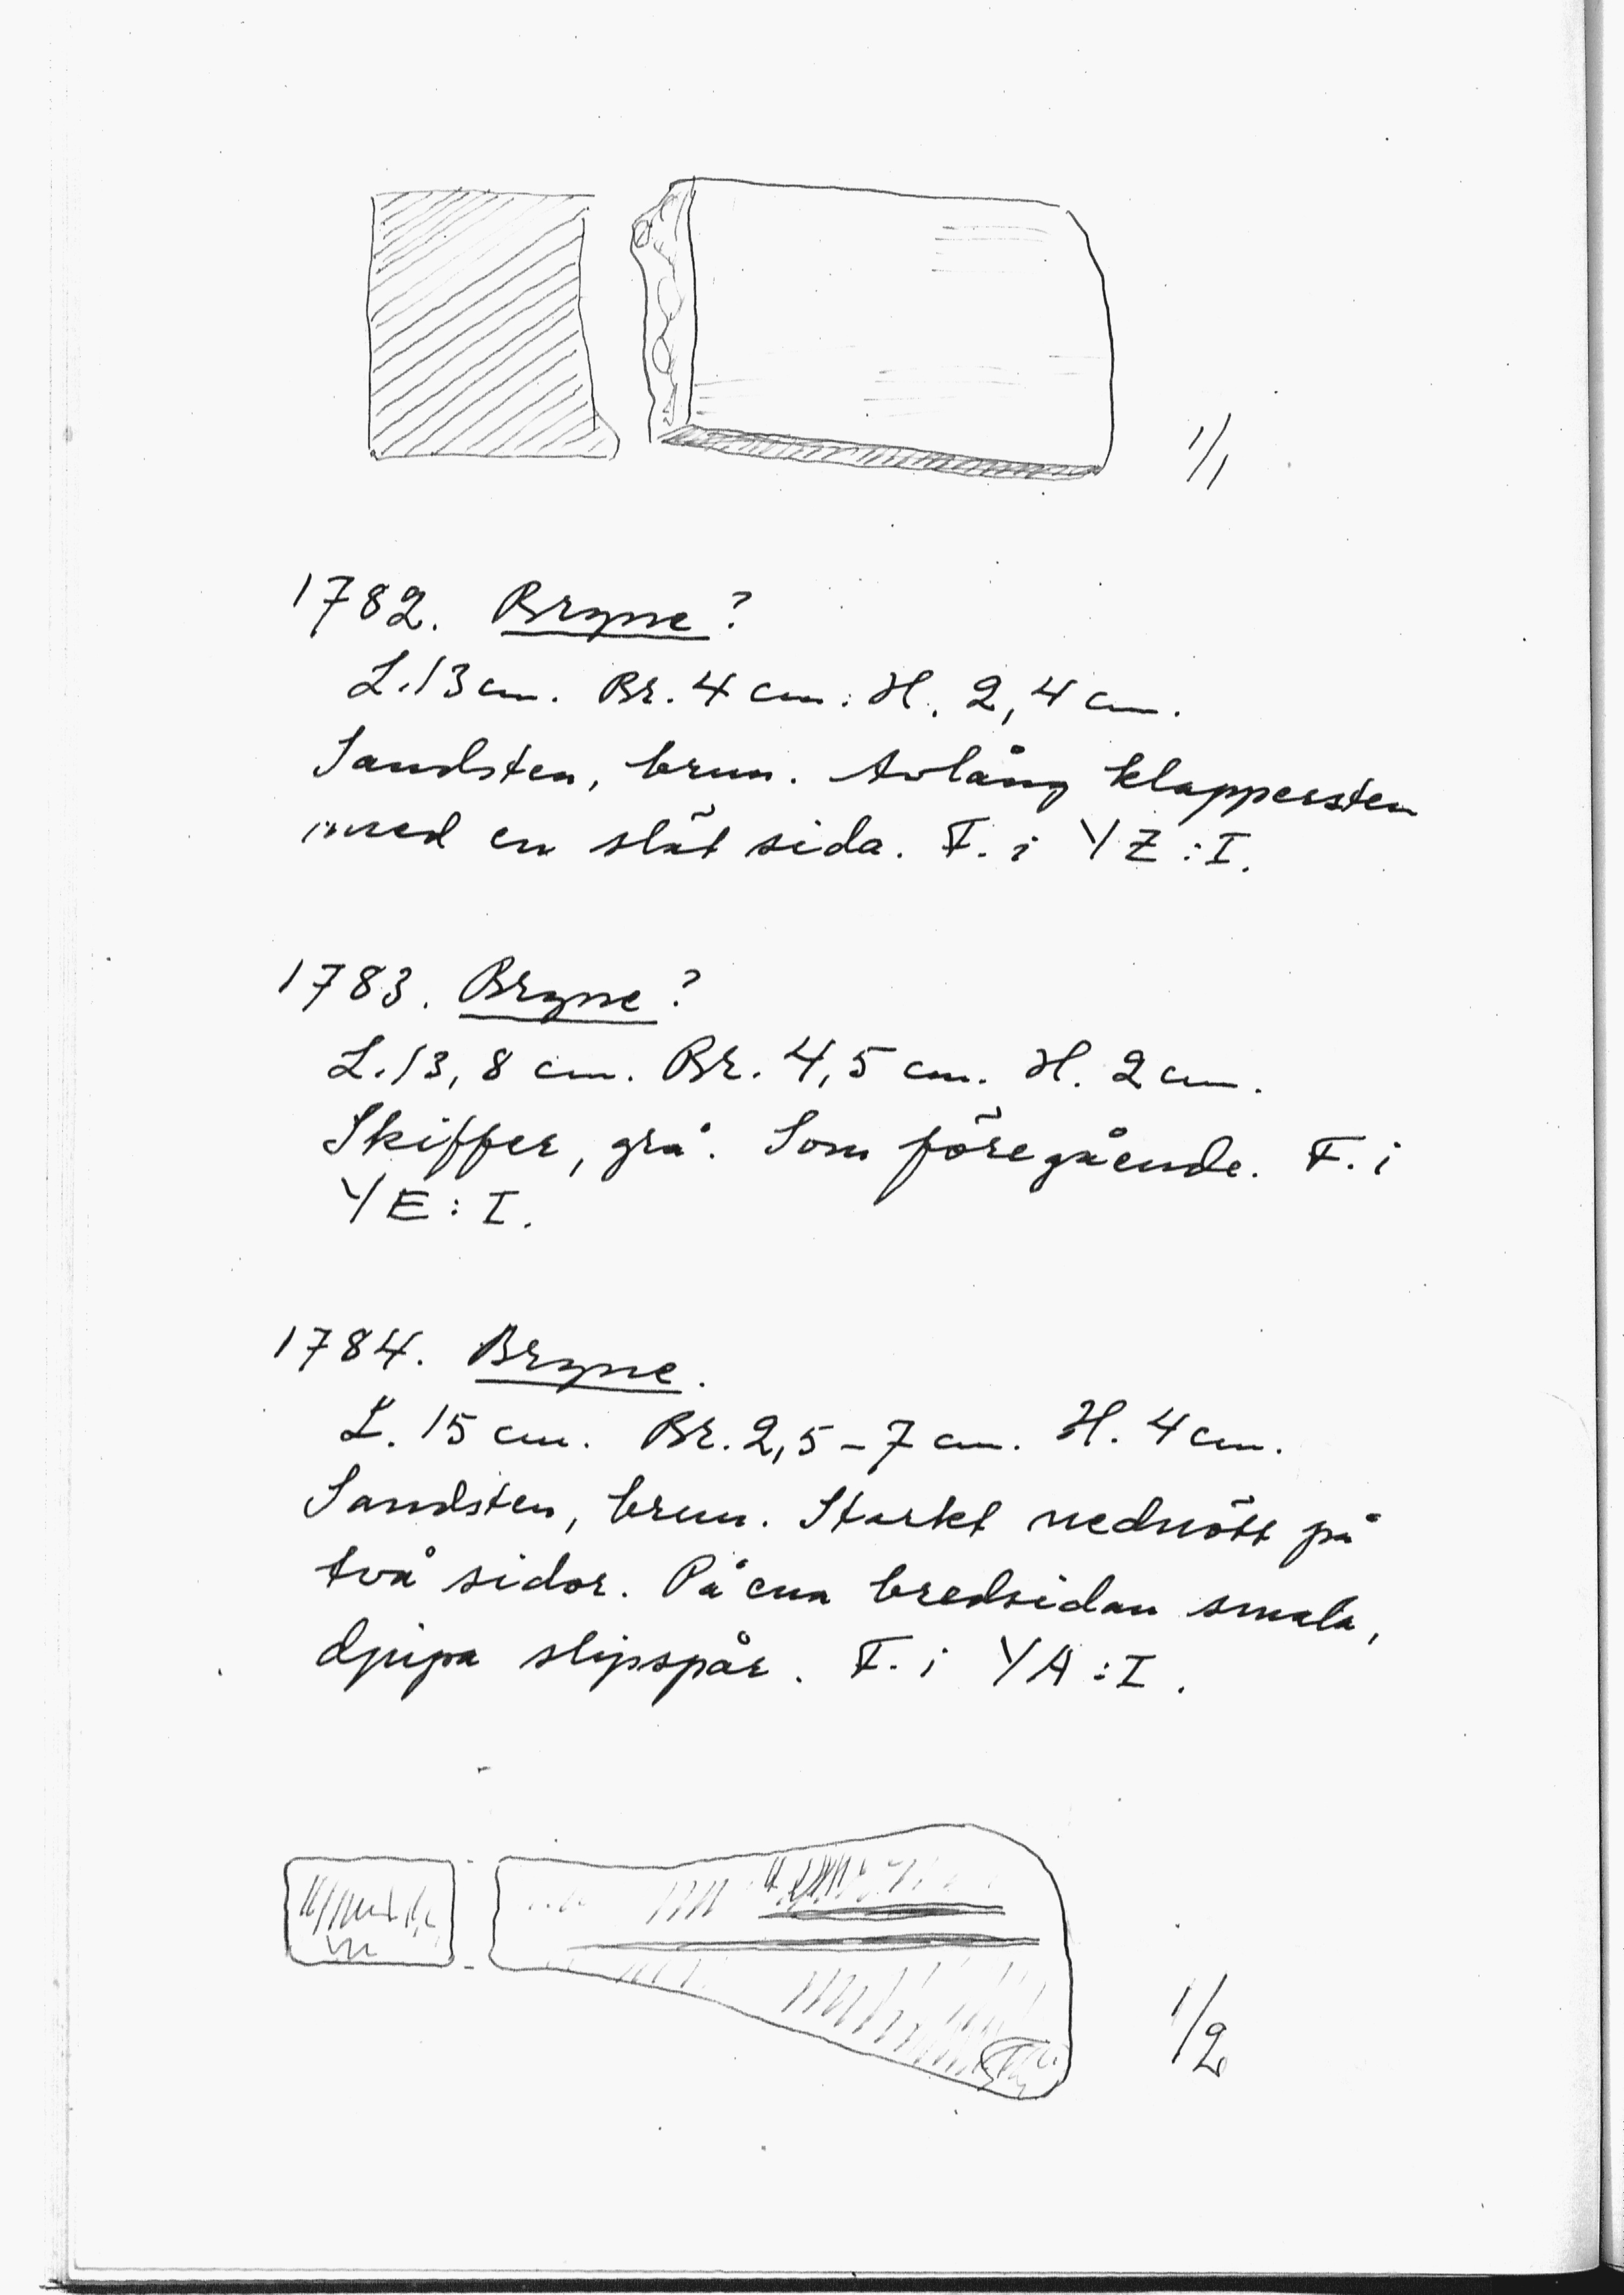 1/1
1782. Bryne?
L. 13 cm. Br. 4 cm. H. 2,4 cm.
Sandsten, brun. Avlång klappersten
med en slät sida. F. i YZ:I.
1783. Bryne?
L. 13,8 cm. Br. 4,5 cm. H. 2 cm.
Skiffer, grå. Som föregående. F. i
YE:I.
1784. Bryne.
L. 15 cm. Br. 2,5-7 cm. H. 4 cm.
Sandsten, brun. Starkt nednött på
två sidor. På ena bredsidan smala,
djupa slipspår. F. i YÄ:I.
1/2